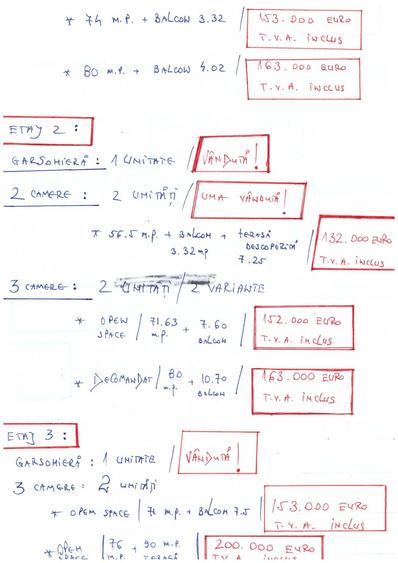 * 74 M.P. + BALCON 3.32 / 153.000 EURO T.V.A. INCLUS
* 80 M.P. + BALCON 4.02 / 163.000 EURO T.V.A. INCLUS
ETAJ 2:
GARSOMIERĂ: 1 UNITATE / VÂNDUTĂ!
2 CAMERE: 2 UNITĂȚI / UNA VÂNDUTĂ!
* 56.5 M.P. + BALCON 3.32 mp + TERASĂ DESCOPERITĂ 7.25 / 132.000 EURO T.V.A. INCLUS
3 CAMERE: 2 UNITĂȚI / 2 VARIANTE
* OPEN SPACE / 71.63 M.P. + 7.60 BALCON / 152.000 EURO T.V.A. INCLUS
* DECOMANDAT / 80 M.P. + 10.70 BALCON / 163.000 EURO T.V.A. INCLUS
ETAJ 3:
GARSOMIERĂ: 1 UNITATE / VÂNDUTĂ!
3 CAMERE: 2 UNITĂȚI
* OPEN SPACE / 71 M.P. + BALCON 7.5 / 153.000 EURO T.V.A. INCLUS
* OPEN SPACE / 76 M.P. + 90 M.P. TERASĂ / 200.000 EURO T.V.A. INCLUS